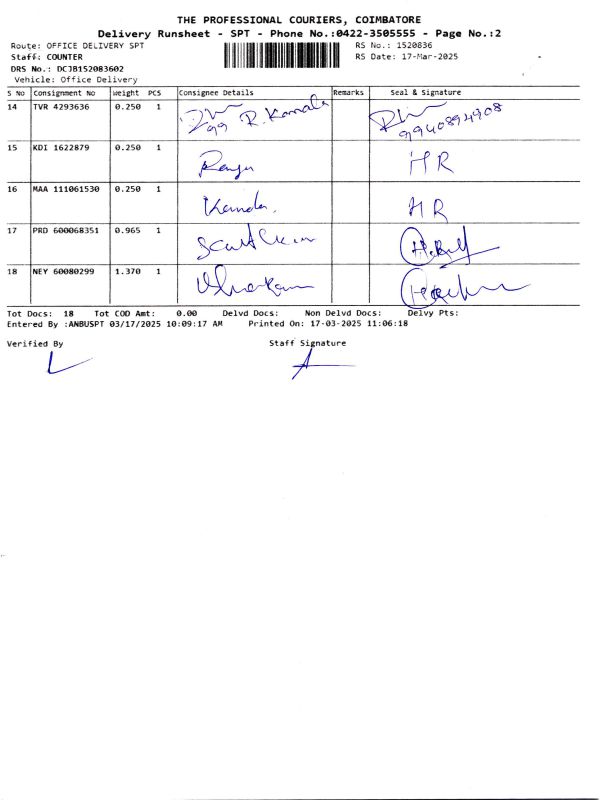 THE PROFESSIONAL COURIERS, COIMBATORE
Delivery Runsheet - SPT - Phone No.:0422-3505555 - Page No.:2
Route: OFFICE DELIVERY SPT RS No.: 1520836
Staff: COUNTER RS Date: 17-Mar-2025
DRS No.: DCJB152083602
Vehicle: Office Delivery
S No Consignment No Weight PCS Consignee Details Remarks Seal & Signature
14 TVR 4293636 0.250 1 R. Kamala 9940894908
15 KDI 1622879 0.250 1 HR
16 MAA 111061530 0.250 1 HR
17 PRD 600068351 0.965 1
18 NEY 60080299 1.370 1
Tot Docs: 18 Tot COD Amt: 0.00 Delvd Docs: Non Delvd Docs: Delvy Pts:
Entered By :ANBUSPT 03/17/2025 10:09:17 AM Printed On: 17-03-2025 11:06:18
Verified By Staff Signature